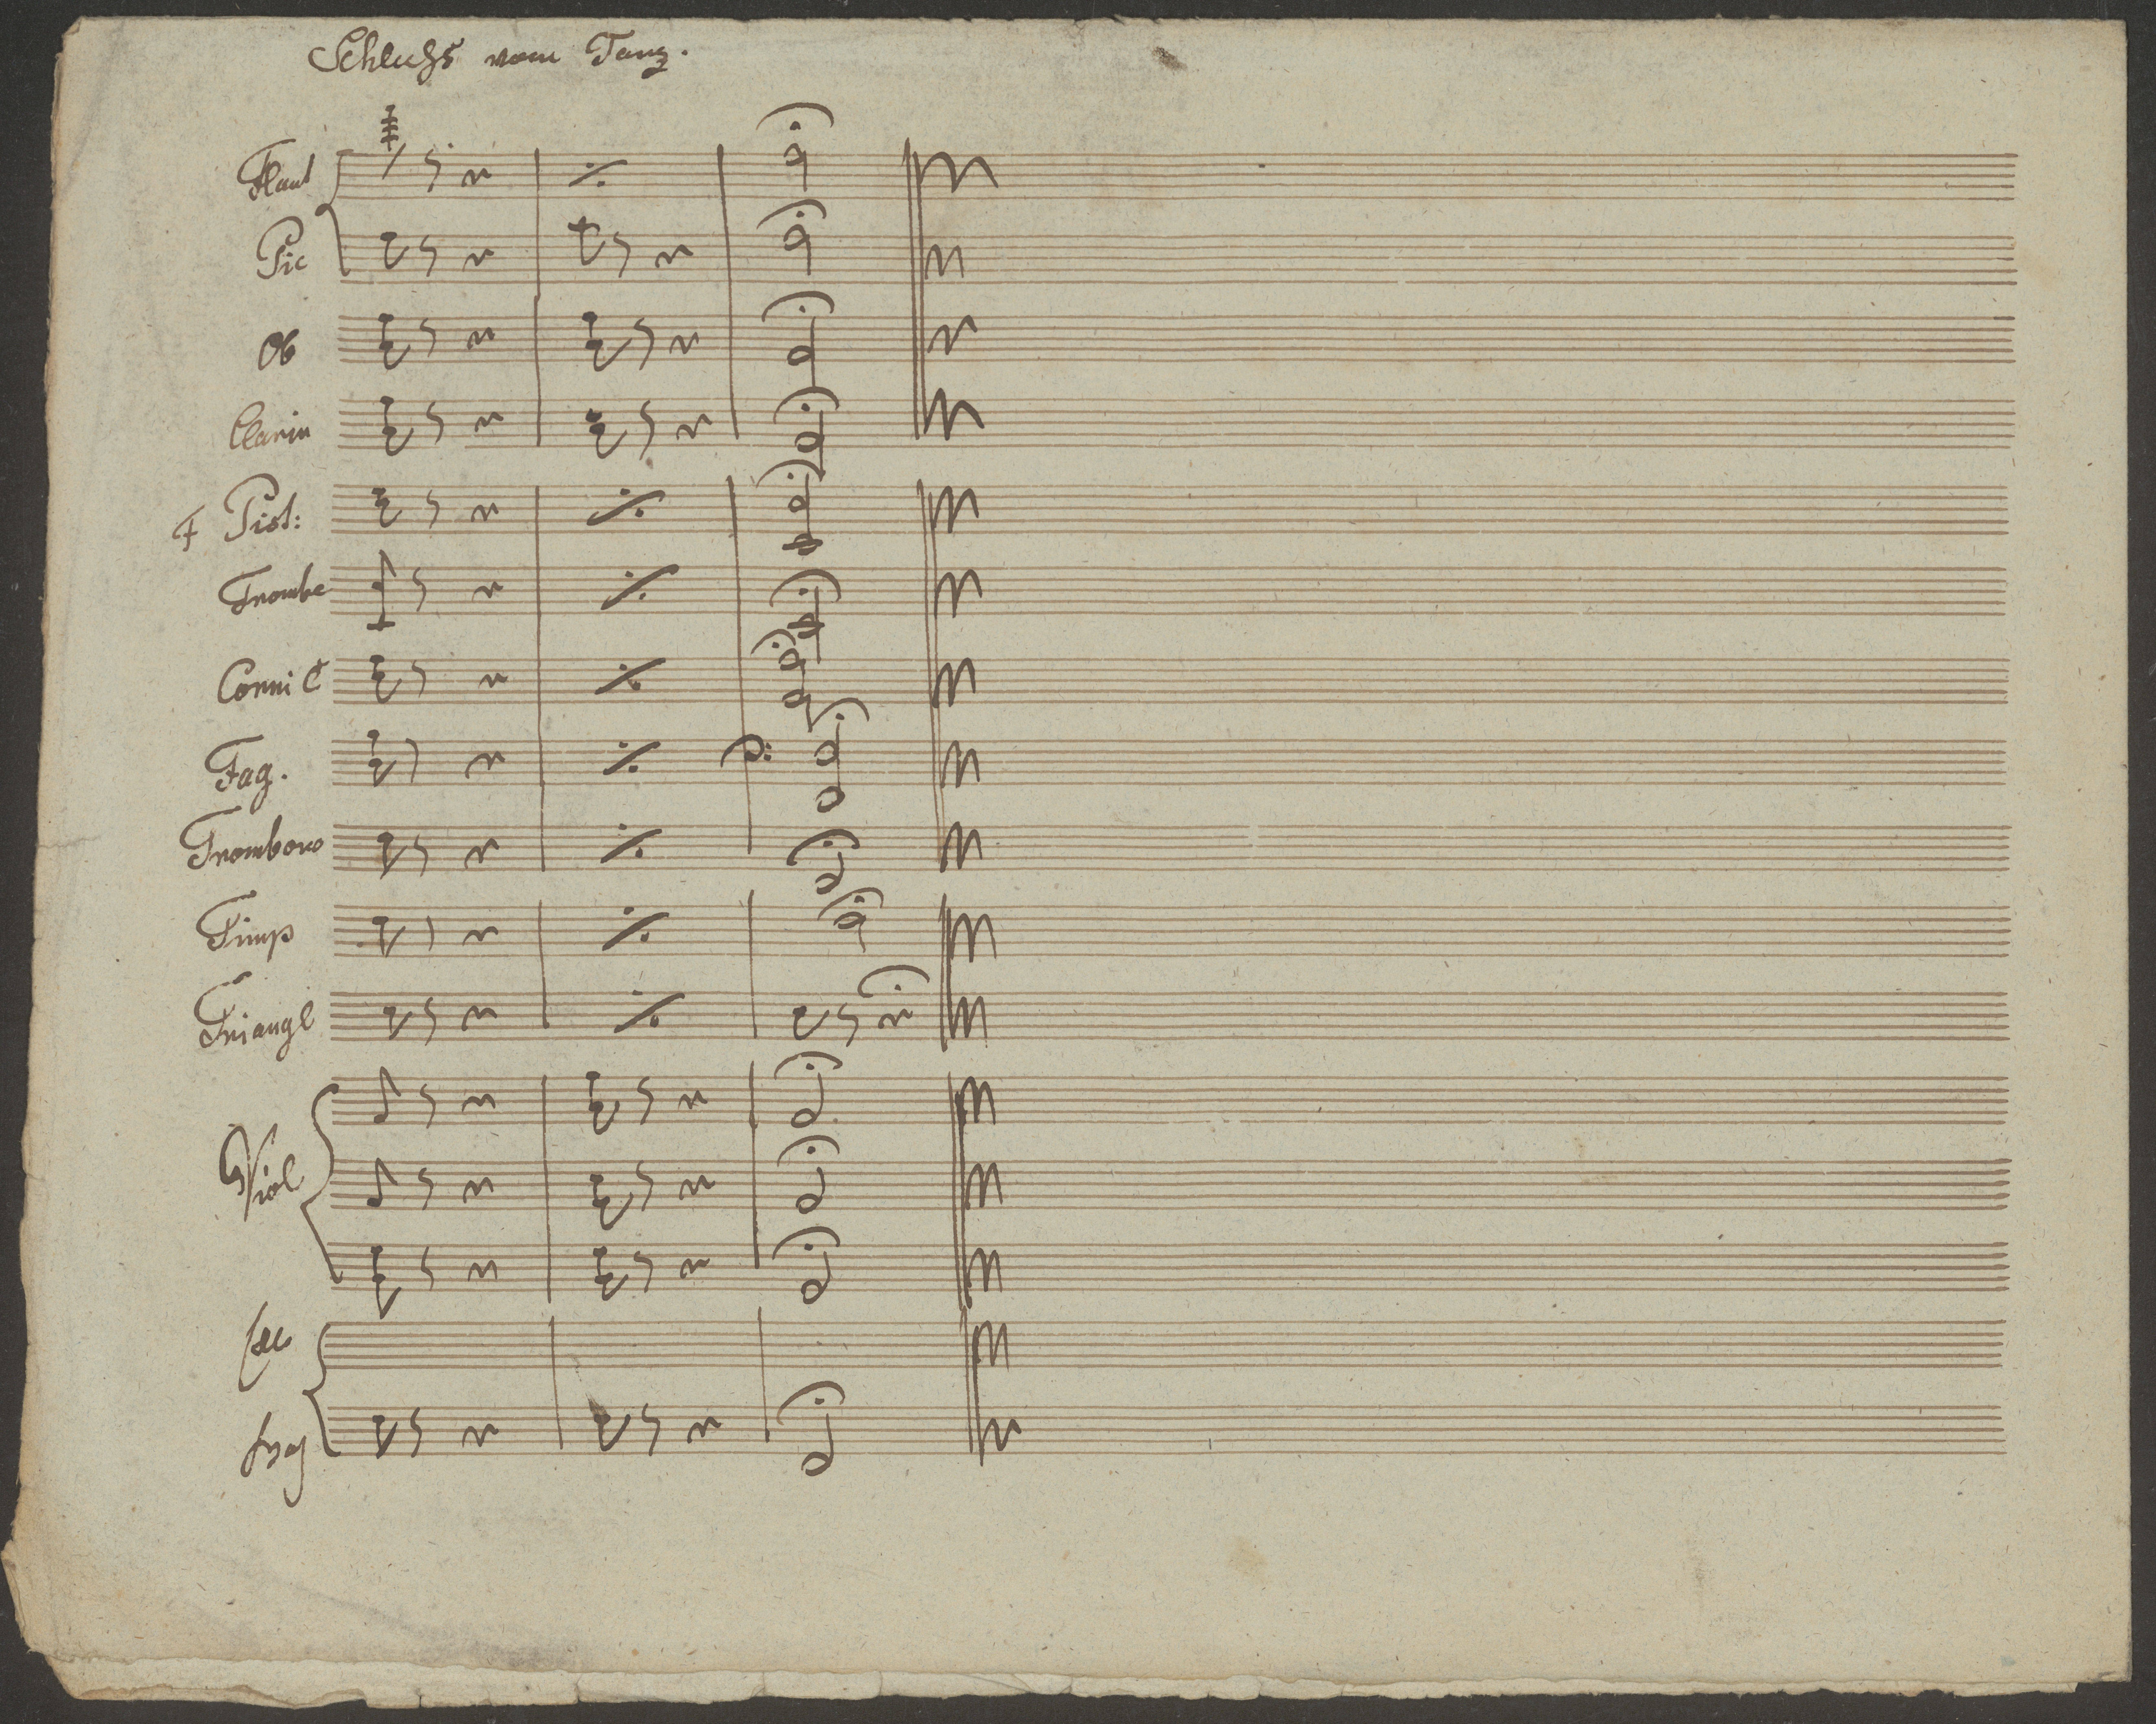 Schluss vom Tanz.
Flaut
Pic
Ob
Clarin
F Pist:
Trombe
Corni C
Fag.
Trombono
Timp
Triangl
Viol